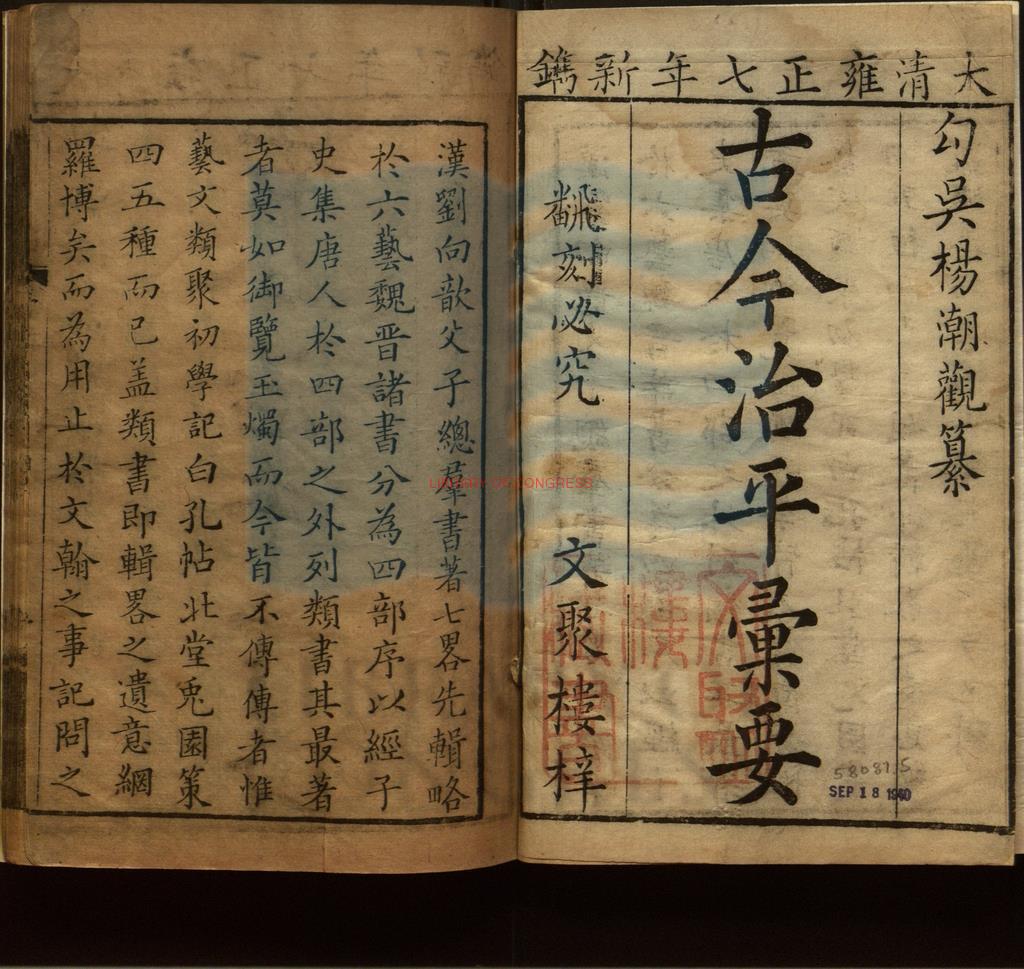 大清雍正七年新鐫
勾吳楊潮觀纂
古今治平彙要
翻刻必究
文聚樓梓
漢劉向歆父子總羣書著七畧先輯略
於六藝魏晉諸書分為四部序以經子
史集唐人於四部之外列類書其最著
者莫如御覽玉燭而今皆不傳傳者惟
藝文類聚初學記白孔帖北堂兎園策
四五種而已盖類書即輯畧之遺意網
羅博矣而為用止於文翰之事記問之
LIBRARY OF CONGRESS
SEP 18 1940